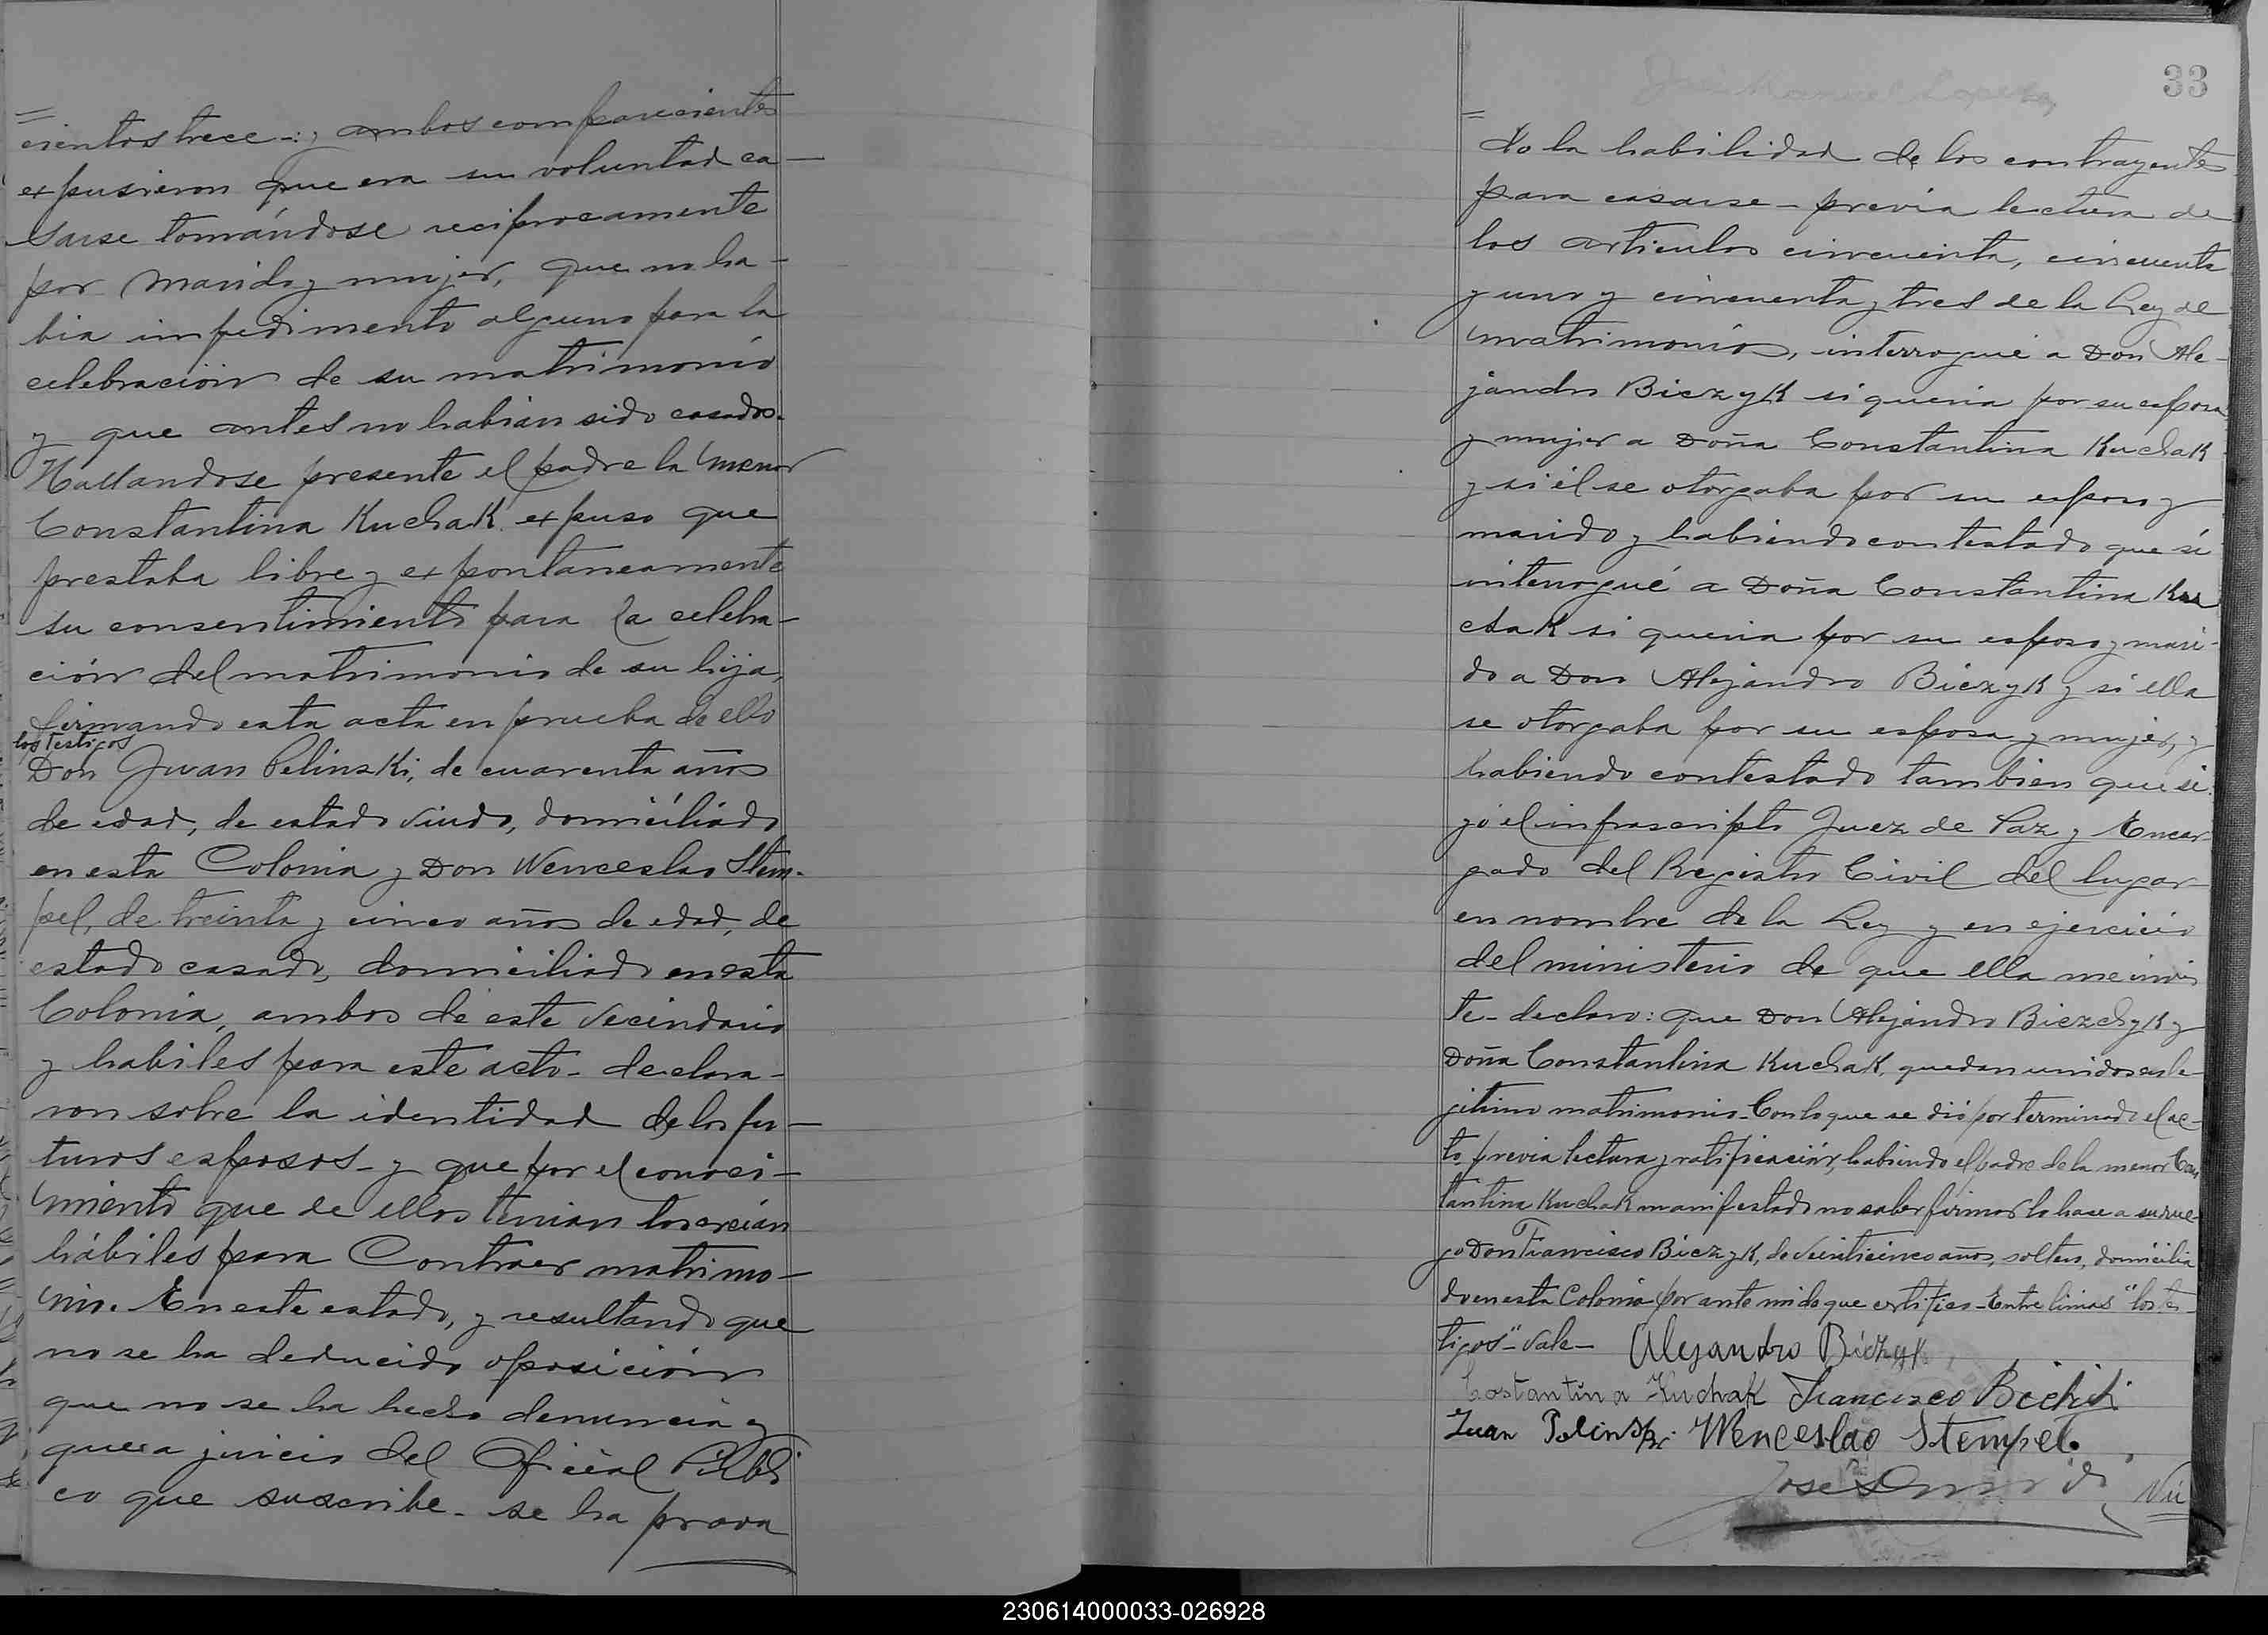 cientos trece -: y ambos comparecientes
expusieron que era su voluntad ca-
sarse tomándose reciprocamente
por marido y mujer, que no ha-
bia impedimento alguno para la
celebración de su matrimonio
y que antes no habian sido casados.
Hallandose presente el padre la menor
Constantina Kuchak expuso que
prestaba libre y expontaneamente
su consentimiento para la celebra-
ción del matrimonio de su hija,
firmando esta acta en prueba de ello
los testigos
Don Juan Pelinski, de cuarenta años
de edad, de estado viudo, domiciliado
en esta Colonia y Don Wenceslao Stem-
pel, de treinta y cinco años de edad, de
estado casado, domiciliado en esta
Colonia, ambos de este vecindario
y habiles para este acto - declara-
ron sobre la identidad de los fu-
turos esposos - y que por el conoci-
miento que de ellos tenian los creian
hábiles para Contraer matrimo-
nio. En este estado, y resultando que
no se ha deducido oposición
que no se ha hecho denuncia y
que a juicio del Oficial Públi
co que suscribe - se ha proba
33
=
do la habilidad de los contrayentes
para casarse - previa lectura de
los articulos cincuenta, cincuenta
y uno y cincuenta y tres de la Ley de
matrimonio, interrogué a Don Ale-
jandro Biezyk si queria por su esposa
y mujer a Doña Constantina Kuchak
y si él se otorgaba por su esposo y
marido y habiendo contestado que si
interrogué a Doña Constantina Ku
chak si queria por su esposo y mari-
do a Don Alejandro Biezyk y si ella
se otorgaba por su esposa y mujer, y
habiendo contestado tambien que si:
yo el infrascripto Juez de Paz y Encar-
gado del Registro Civil del lugar
en nombre de la Ley y en ejercicio
del ministerio de que ella me invis
te - declaro: que Don Alejandro Biezchyk y
Doña Constantina Kuchak, quedan unidos en le-
jitimo matrimonio - Con lo que se dió por terminado el ac-
to previa lectura y ratificación, habiendo el padre de la menor Cons
tantina Kuchak manifestado no saber firmar lo hace a su rue-
go Don Francisco Biezyk, de veinticinco años, soltero, domicilia
do en esta Colonia por ante mi de que certifico - Entre lineas "los tes-
tigos" - vale -
Alejandro Biezyk
Costantina Kuchak Francisco Bichik
Juan Polinski Wenceslao Stempel.
José